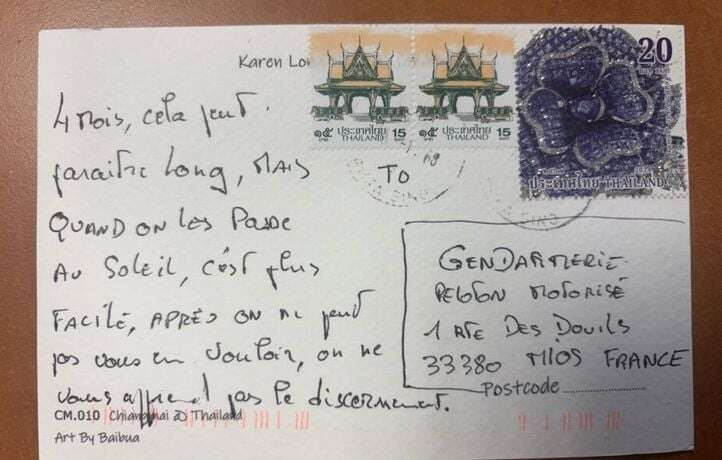 Karen Lo
๑๕ ประเทศไทย 15
THAILAND
๑๕ ประเทศไทย 15
THAILAND
20
ประเทศไทย THAILAND
TO
4 mois, cela peut
paraitre long, mais
QUAND ON LES PASSE
AU SOLEIL, c'est plus
FACILE, APRÈS ON ne peut
pas vous en vouloir, on ne
vous apprend pas le discernement.
GENDARMERIE
PELOTON MOTORISÉ
1 RTE DES DOUILS
33380 MIOS FRANCE
Postcode
CM.010 Chiangmai Thailand
Art By Baibua